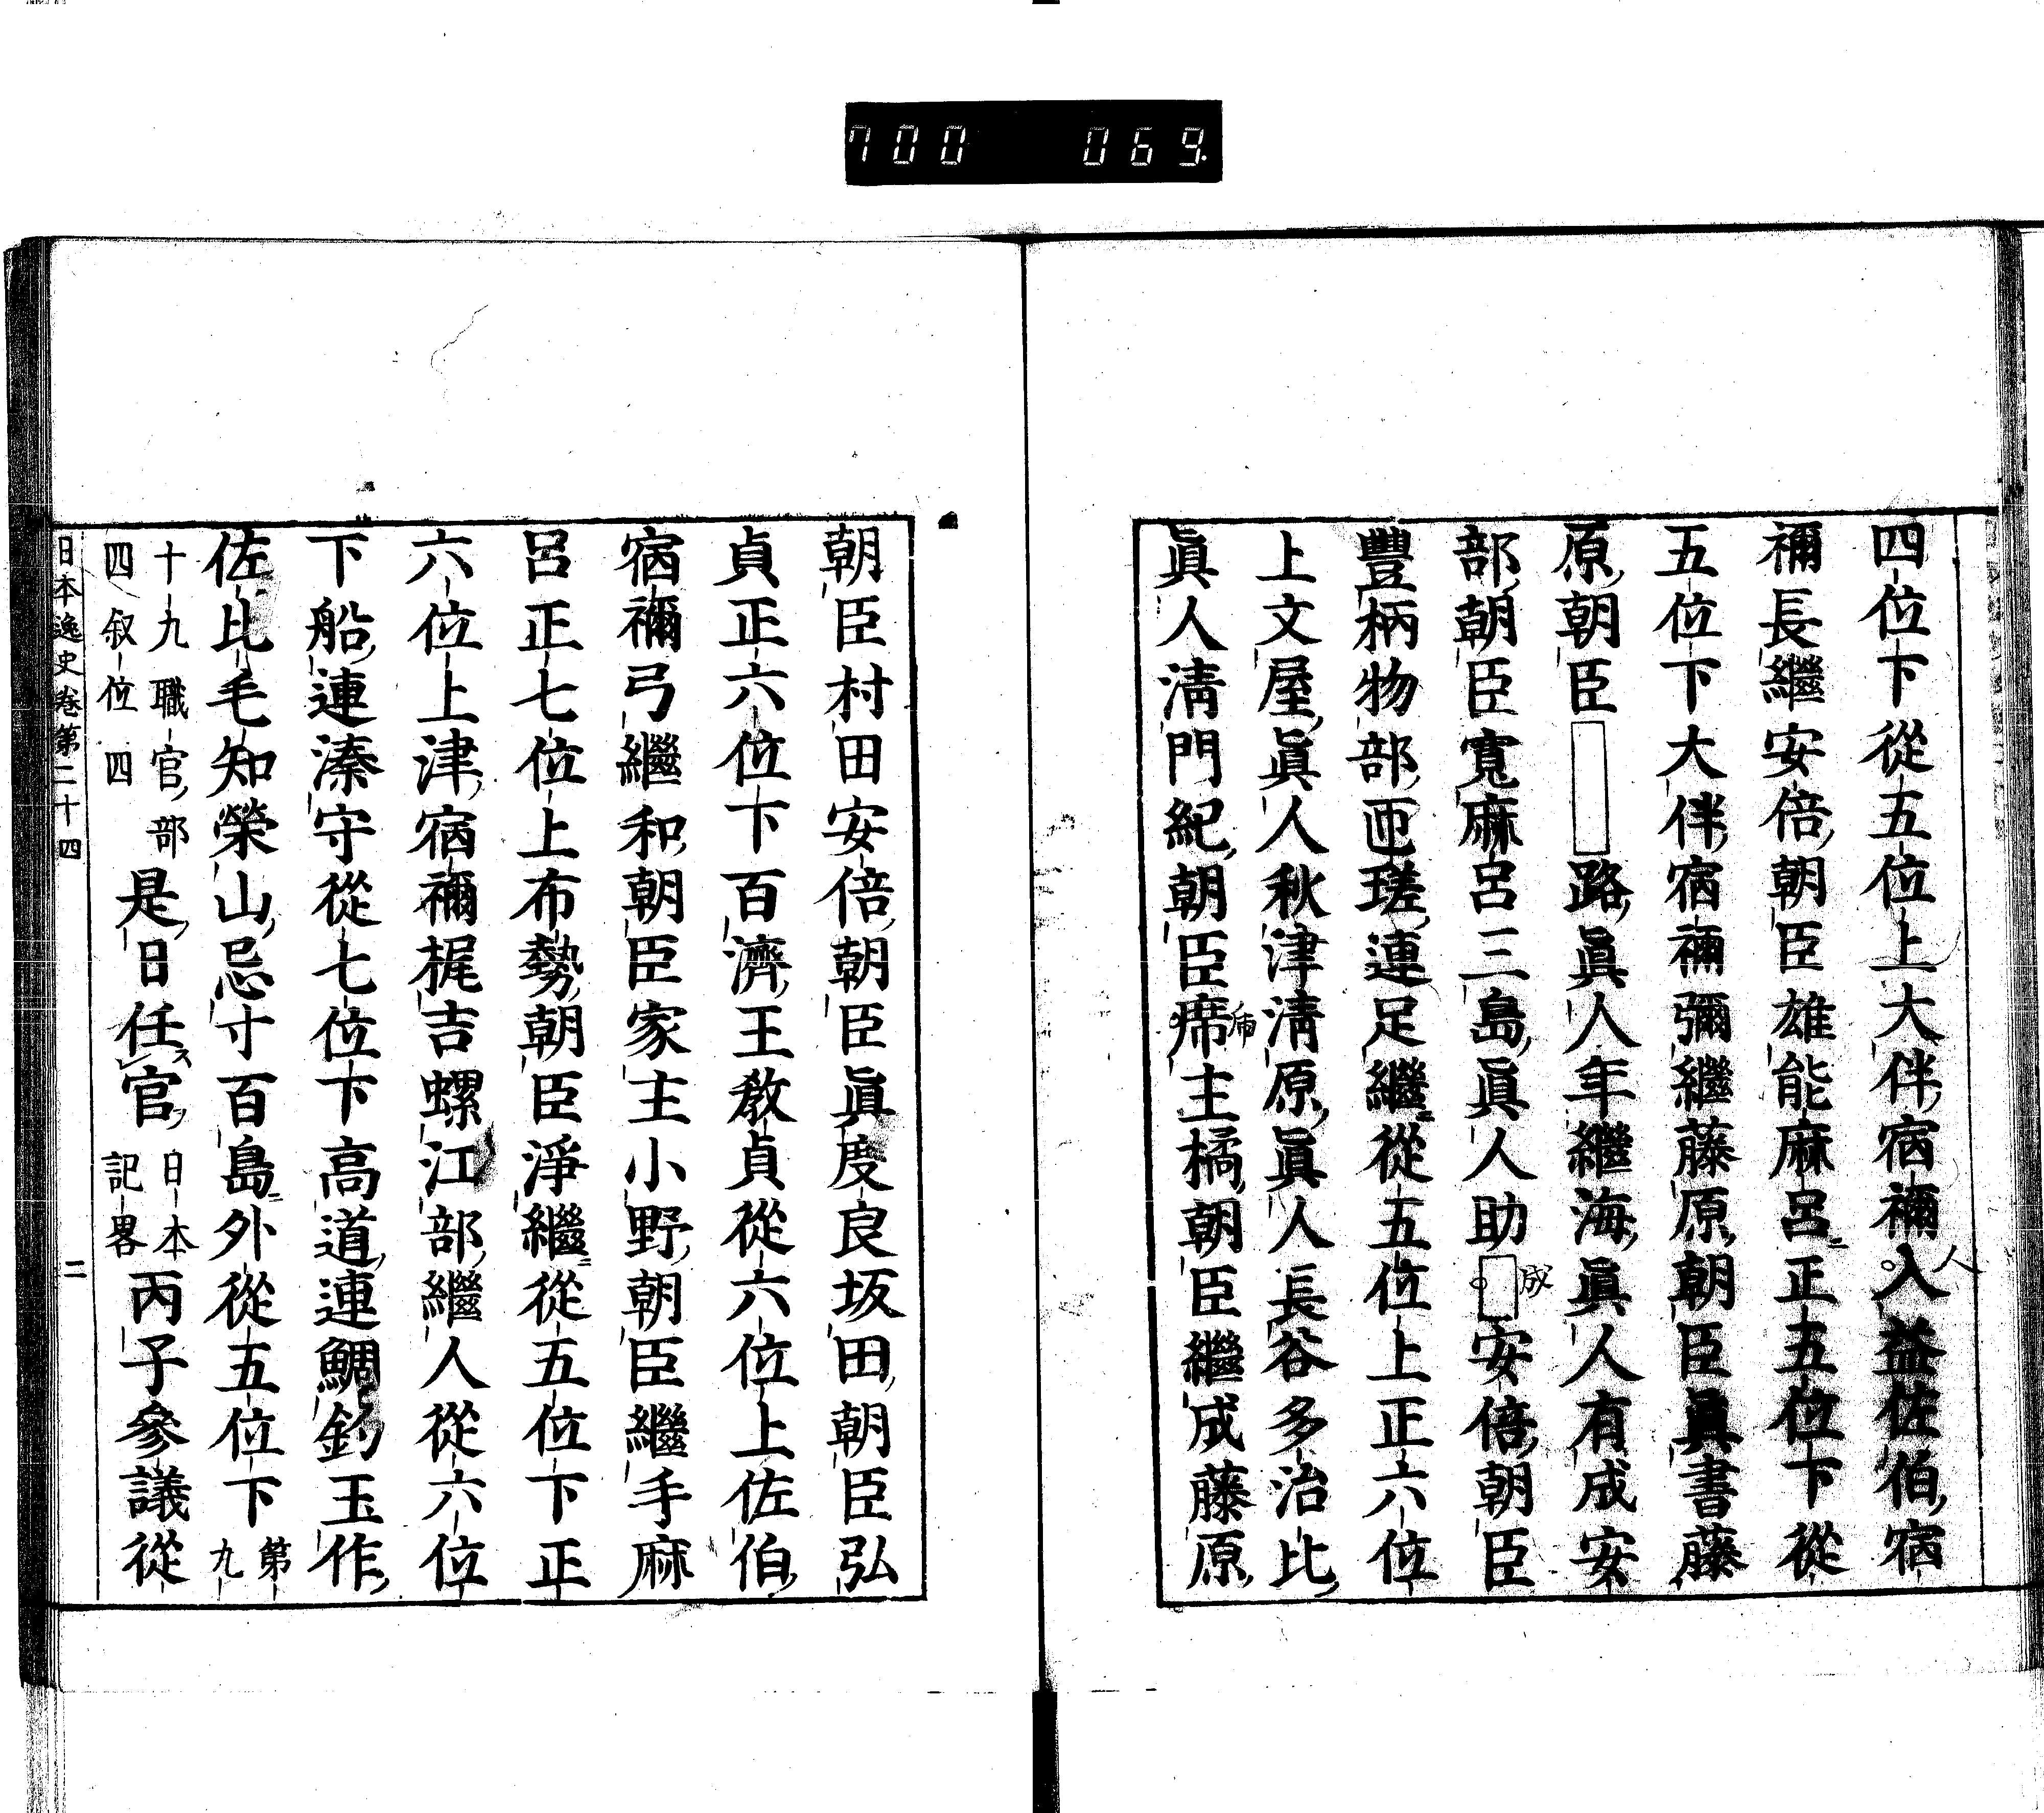 700 069.
四位下從五位上大伴宿禰入益佐伯宿
人
禰長繼安倍朝臣雄能麻呂正五位下從
五位下大伴宿禰彌繼藤原朝臣眞書藤
原朝臣路眞人年繼海眞人有成安
部朝臣寬麻呂三島眞人助安倍朝臣
成
豐柄物部匝瑳連足繼從五位上正六位
上文屋眞人秋津淸原眞人長谷多治比
眞人淸門紀朝臣席主橘朝臣繼成藤原
朝臣村田安倍朝臣眞度良坂田朝臣弘
貞正六位下百濟王教貞從六位上佐伯
宿禰弓繼和朝臣家主小野朝臣繼手麻
呂正七位上布勢朝臣淨繼從五位下正
六位上津宿禰梶吉螺江部繼人從六位
下船連湊守從七位下高道連鯛釣玉作
佐比毛知榮山忌寸百島外從五位下第九
十九職官部四叙位四是日任官日本記畧丙子參議從
日本逸史卷第二十四 二